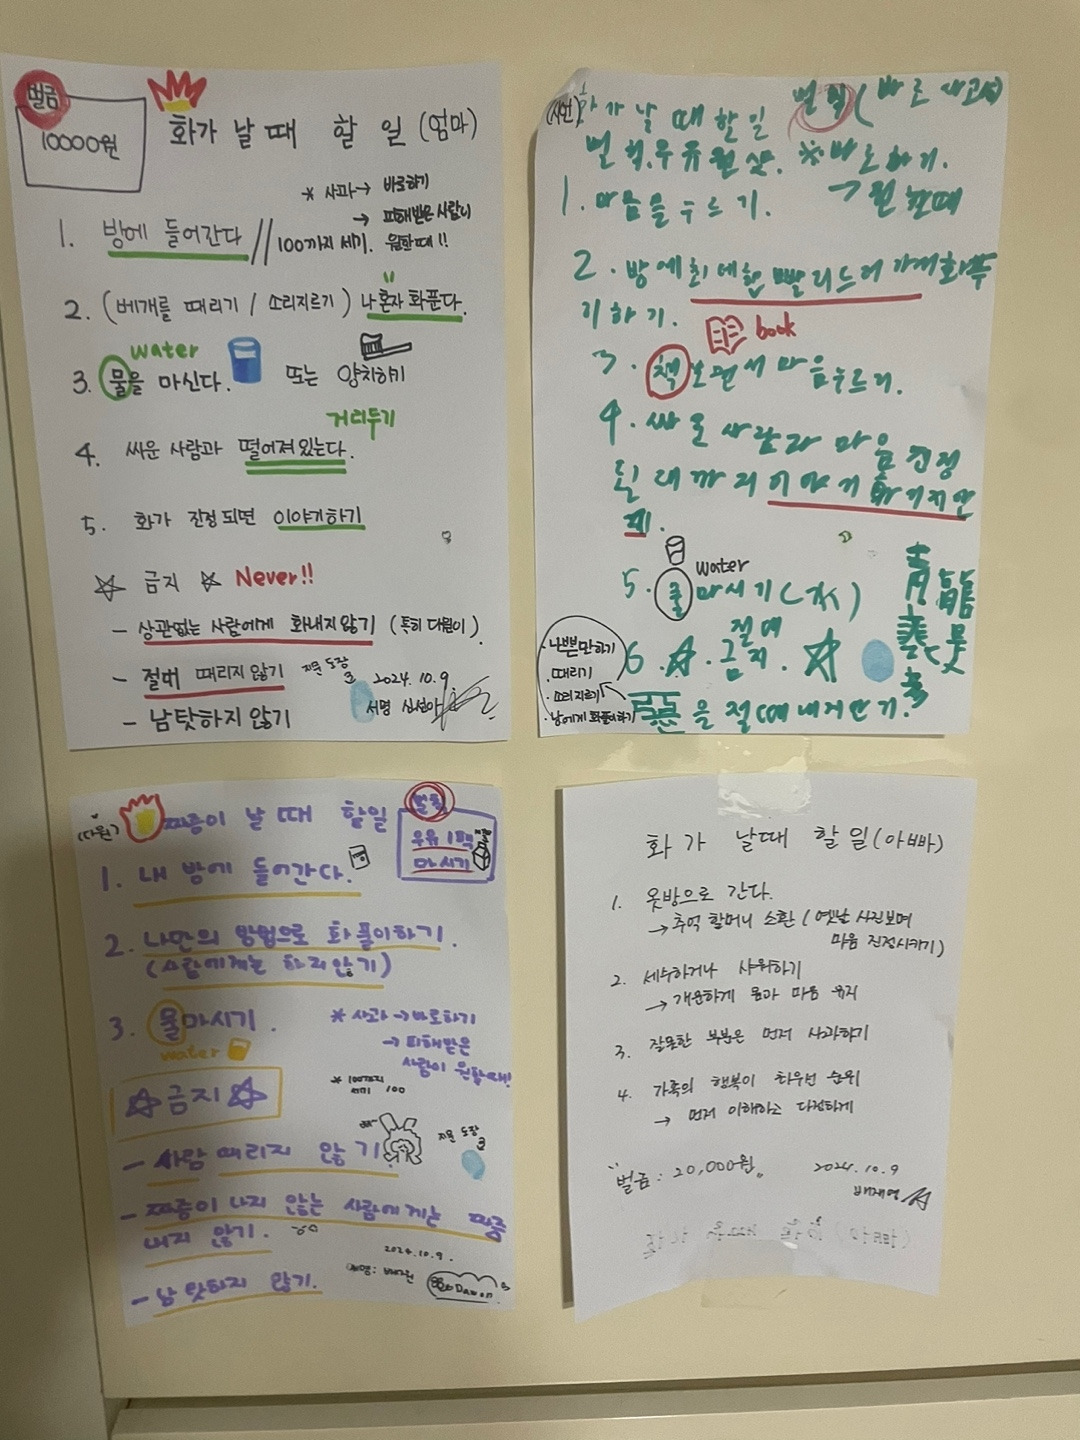 벌금
10000원
화가 날 때 할 일 (엄마)
* 사과→ 바로하기
→ 피해받은 사람이
원할때!!
1. 방에 들어간다 // 100까지 세기.
2. (베개를 때리기 / 소리지르기) 나혼자 화푼다.
water
3. 물을 마신다. 또는 양치하기
거리두기
4. 싸운 사람과 떨어져있는다.
5. 화가 진정되면 이야기하기
☆ 금지 ☆ Never!!
- 상관없는 사람에게 화내지않기 (특히 다원이).
- 절대 때리지 않기
지문 도장
2024. 10. 9
서명 신선아
- 남탓하지 않기
화가 날 때 할 일
벌칙. 우유 원샷. *바로하기.
→ 원할때
1. 마음을 누르기.
2. 방에
기하기.
book
3. 책 보면서 마음누르기.
4. 싸운 사람과 마음 진정
될 때까지 이야기하기지만
water
5. 물마시기(水)
절대
6. ☆. 금지. ☆
· 나쁜말하기
· 때리기
· 소리지르기
· 남에게 화풀이하기
(다원)
짜증이 날 때 할일
벌칙
우유 1팩
마시기
1. 내 방에 들어간다.
2. 나만의 방법으로 화풀이하기.
(사람에게는 하지않기)
3. 물마시기.
water
* 사과→바로하기
→ 피해받은
사람이 원할때!
* 100까지
세기 100
☆금지☆
- 사람 때리지 않기.
지문 도장
- 짜증이 나지 않는 사람에게는 짜증
내지 않기.
2024.10.9.
서명: 배다원
Dawon
- 남탓하지 않기.
화가 날때 할일 (아빠)
1. 옷방으로 간다.
→ 추억 할머니 소환 (옛날 사진보며
마음 진정시키기)
2. 세수하거나 샤워하기
→ 개운하게 몸과 마음 유지
3. 잘못한 부분은 먼저 사과하기
4. 가족의 행복이 최우선 순위
→ 먼저 이해하고 다정하게
"벌금: 20,000원"
2024.10.9
배재영